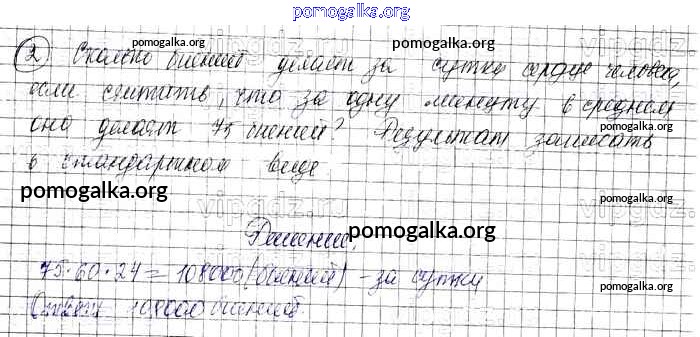 pomogalka.org
2 Сколько биений делает за сутки сердце человека,
если считать, что за одну минуту в среднем
оно делает 75 биений? Результат записать
в стандартном виде
Решение.
75·60·24=108000(биений) - за сутки
Ответ: 108000 биений.
pomogalka.org
pomogalka.org
pomogalka.org
pomogalka.org
pomogalka.org
pomogalka.org
pomogalka.org
pomogalka.org
pomogalka.org
vipgdz.ru
vipgdz.ru
vipgdz.ru